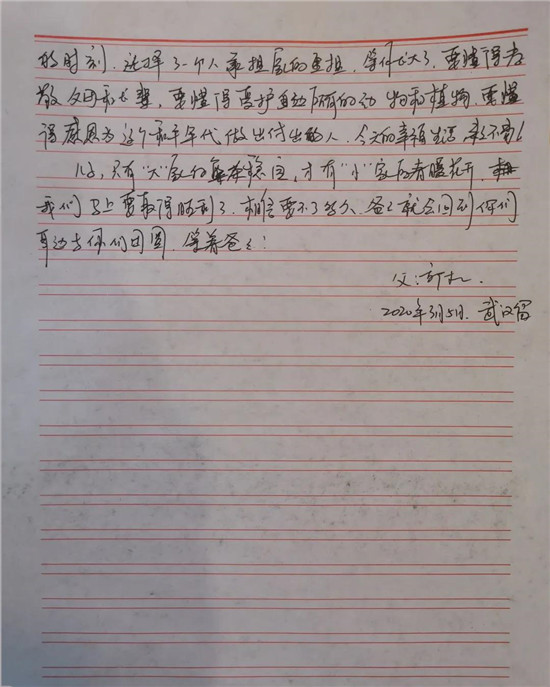 的时刻，选择了一个人承担家的重担，等你长大了，要懂得孝
敬父母和长辈，要懂得爱护身边所有的动物和植物，要懂
得感恩为这个和平年代做出付出的人，今天的幸福生活来之不易！
儿子，只有“大”家的安稳，才有“小”家的春暖花开，
我们马上要取得胜利了，相信要不了多久，爸爸就会回到你们
身边与你们团圆，等着爸爸！
父：
2020年3月5日，武汉留